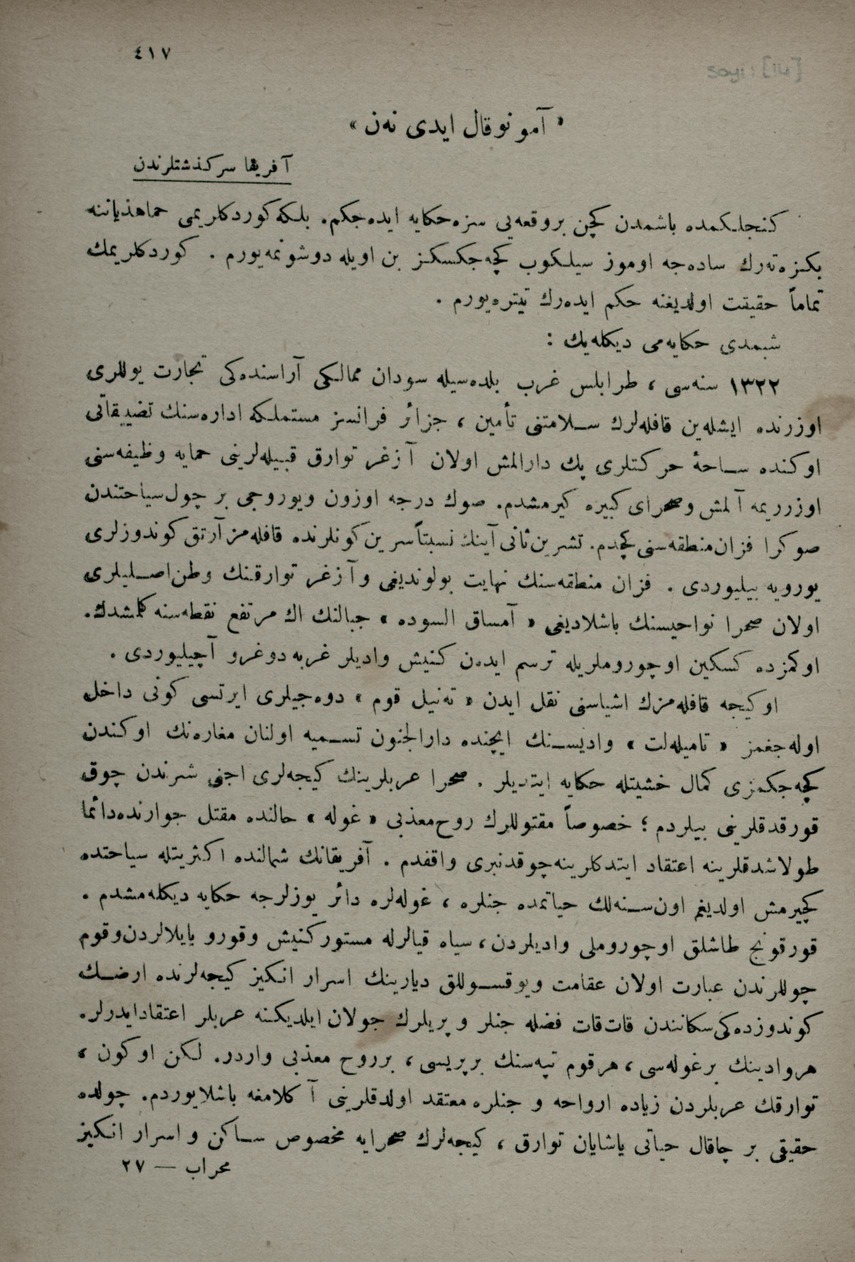 ٤١٧
« آمونوقال ايدى نه‌ن »
آفريقا سركذشتلرندن
كنجلكمده باشمدن كچن بروقعه‌يى سزه حكايه ايده‌جكم. بلكه كوردكلريمى حماهذياننه
بكزه‌ته‌رك ساده‌جه اوموز سيلكوب كچه‌جكسكز بن اويله دوشونمه‌يورم . كوردكلريمك
تماماً حقيقت اولديغنه حكم ايده‌رك تيتره‌يورم .
شيمدى حكايه‌مى ديكله‌يك :
١٣٢٢ سنه‌سى ، طرابلس غرب بلده‌سيله سودان ممالكى آراسنده‌كى تجارت يوللرى
اوزرنده ايشله‌ين قافله‌لرك سلامتنى تأمين ، جزائر فرانسز مستملكه اداره‌سنك تضييقاتى
اوكنده ساحهٔ حركتلرى پك دارالمش اولان آزغر توارق قبيله‌لرينى حمايه وظيفه‌سنى
اوزرريمه آلمش وصحراى كبيره كيرمشدم. صوك درجه اوزون ويوروجى بر چول سياحتندن
صوكرا فزان منطقه‌سنى كچدم. تشرين ثانى آينك نسبتاً سرين كونلرنده قافله‌مز آرتق كوندوزلرى
يورويه بيليوردى . فزان منطقه‌سنك نهايت بولونديغى وآزغر توارقنك وطن اصليلرى
اولان صحرا نواحيسنك باشلاديغى « آمساق السوده » جبالنك اك مرتفع نقطه‌سنه كلمشدك.
اوكمزده كسكين اوچوروملريله ترسم ايدن كنيش واديلر غربه دوغرو آچيليوردى .
اوكيجه قافله‌مزك اشياسنى نقل ايدن « ته‌نيل قوم » دوه‌جيلرى ايرتسى كونى داخل
اوله‌جغمز « تاميله‌لت » واديسنك ايچنده دارالجنون تسميه اولنان مغاره‌نك اوكندن
كچه‌جكمزى كمال خشيتله حكايه ايتديلر . صحرا عربلرينك كيجه‌لرى اجنى شرندن چوق
قورقدقلرينى بيلردم ؛ خصوصاً مقتوللرك روح معذبى « غوله » حالنده مقتل جوارنده‌دائما
طولاشدقلرينه اعتقاد ايتدكلرينه‌چوقدنبرى واقفدم . آفريقانك شمالنده اكثريتله سياحتده
كچيرمش اولديغم اون سنه‌لك حياتمده جنلره ، غوله‌لره دائر يوزلرجه حكايه ديكله‌مشدم .
قورقونج طاشلق اوچوروملى واديلردن، سياه قيالرله مستور كنيش وقورو يايلالردن وقوم
چوللرندن عبارت اولان عقامت ويوقسوللق ديارينك اسرار انكيز كيجه‌لرنده ارضك
كوندوزده‌كى سكانندن قات قات فضله جنلر و پريلرك جولان ايلديكنه عربلر اعتقادايدرلر.
هروادينك برغوله‌سى ، هرقوم تپه‌سنك برپريسى ، برروح معذبى واردر. لكن اوكون ،
توارقك عربلردن زياده ارواحه و جنلره معتقد اولدقلرينى آ كلامغه باشلايوردم. چولده
حقيقى بر چاقال حياتى ياشايان توارق ، كيجه‌لرك صحرايه مخصوص ساكن و اسرار انكيز
محراب — ٢٧